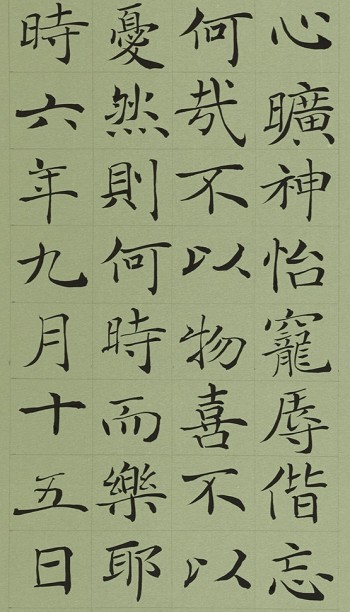 心曠神怡寵辱偕忘
何哉不以物喜不以
憂然則何時而樂耶
時六年九月十五日